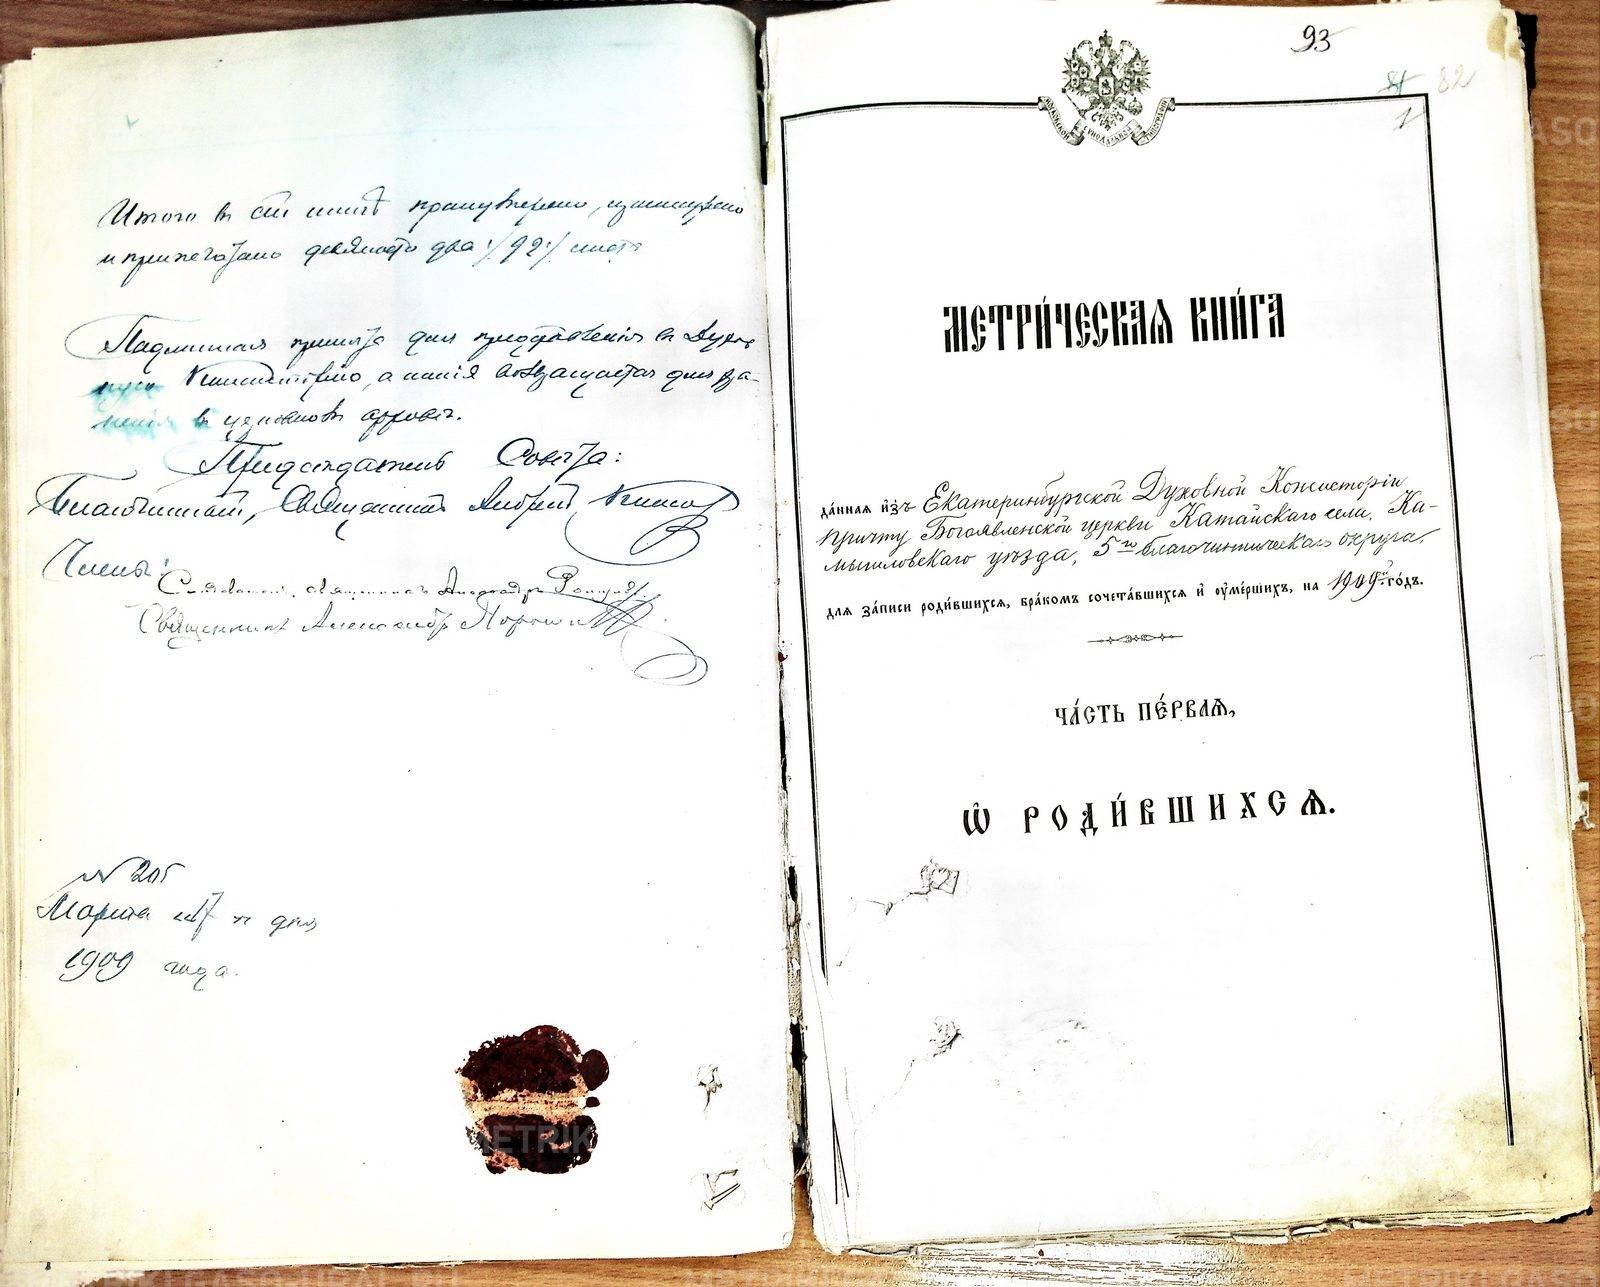 Итого въ сей книгѣ пронумеровано, прошнуровано
и припечатано девяносто два /92/ листа
Подлинная принята для представленія въ Духов-
ную Консисторію, а копія возвращается для хра-
ненія въ церковномъ архивѣ.
Предсѣдатель Совѣта:
Благочинный, Священникъ Андрей
Члены:
священникъ Александръ
Священникъ Александръ
№ 205
Марта 17 дня
1909 года.
93
82
1
МЕТРИ́ЧЕСКАѦ КНИ́ГА
да́нная и҆зъ Екатеринбургской Духовной Консисторіи
причту Богоявленской церкви Катайскаго села, Ка-
мышловскаго уѣзда, 5го благочинническаго округа,
для за́писи роди́вшихсѧ, бра́комъ сочета́вшихсѧ и҆ оу҆ме́ршихъ, на 1909й го́дъ.
ЧА́СТЬ ПЕ́РВАѦ,
Ѡ҆ РОДИ́ВШИХСѦ.